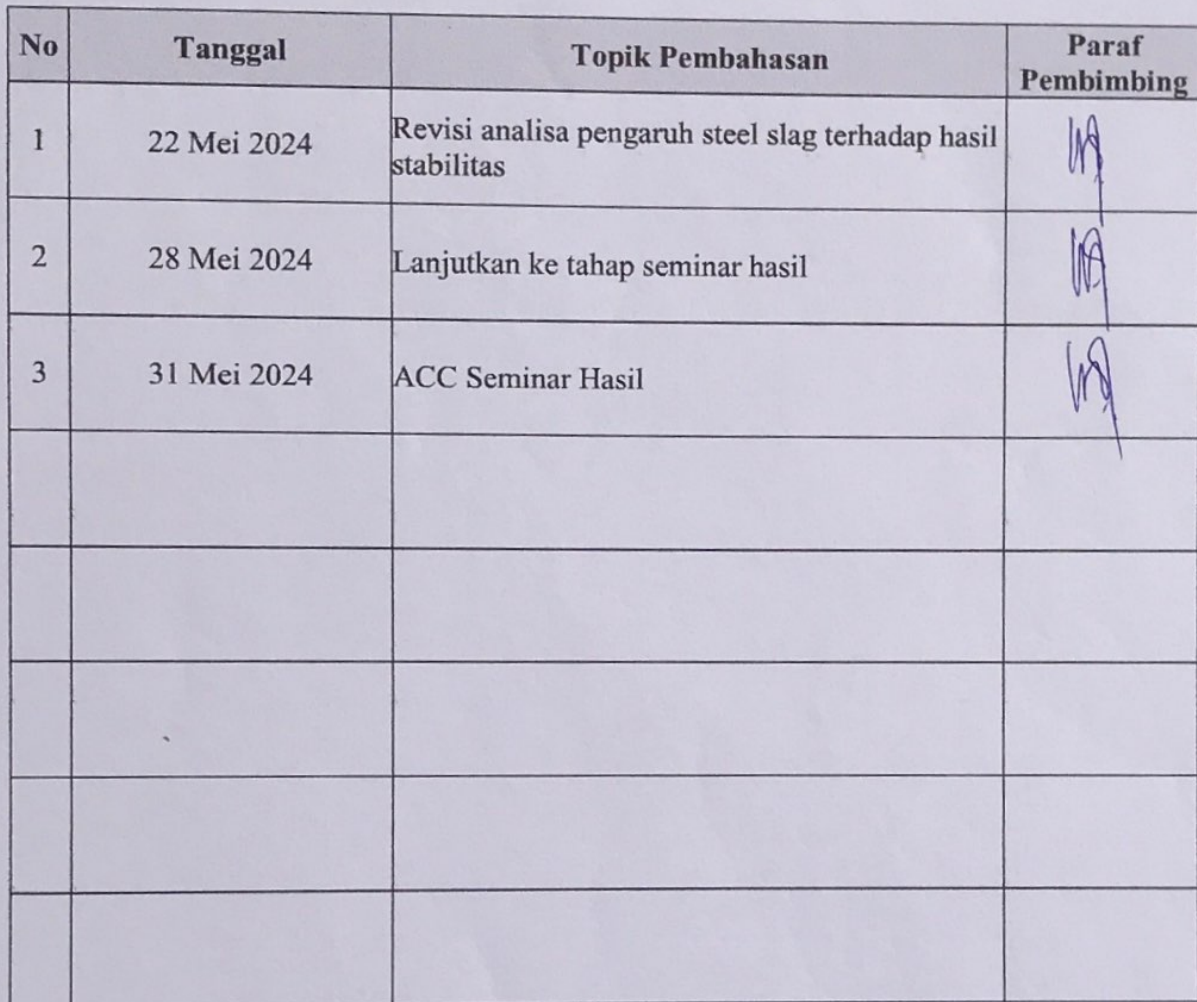 No Tanggal Topik Pembahasan Paraf
Pembimbing
1 22 Mei 2024 Revisi analisa pengaruh steel slag terhadap hasil
stabilitas
2 28 Mei 2024 Lanjutkan ke tahap seminar hasil
3 31 Mei 2024 ACC Seminar Hasil